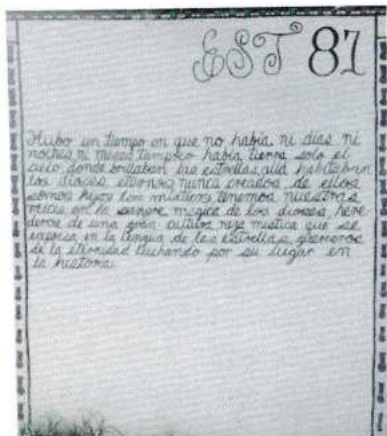 EST 81
Hubo un tiempo en que no habia ni dias ni
noches ni meses tampoco habia tierra solo el
cielo donde brillaban las estrellas, allá habitaban
los dioses eternos nunca creados de ellos
somos hijos los mixtecos tenemos nuestras
raices en la sangre magica de los dioses, here
deros de una gran cultura rica mistica que se
expresa en la lengua de las estrellas, guerreros
de la eternidad luchando por su lugar en
la historia.